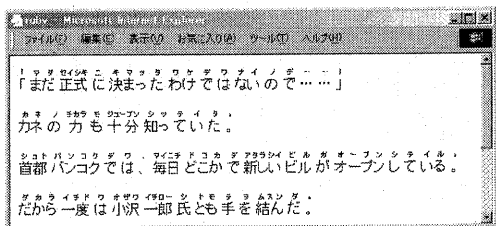 ruby - Microsoft Internet Explorer
ファイル(F) 編集(E) 表示(V) お気に入り(A) ツール(T) ヘルプ(H)
「マダ セイシキ ニ キマッタ ワケデワナイノデ……」
「まだ 正式 に 決まった わけで はないので……」
カネ ノ チカラ モ ジューブン シッテイタ。
カネ の 力 も 十分 知っていた。
シュト バンコクデワ、マイニチ ドコカデ アタラシイ ビル ガ オープンシテイル。
首都 バンコクでは、毎日 どこかで 新しい ビル が オープンしている。
ダカラ イチド ワ オザワ イチロー シ トモ テ ヲ ムスンダ。
だから 一度 は 小沢 一郎 氏 とも 手 を 結んだ。